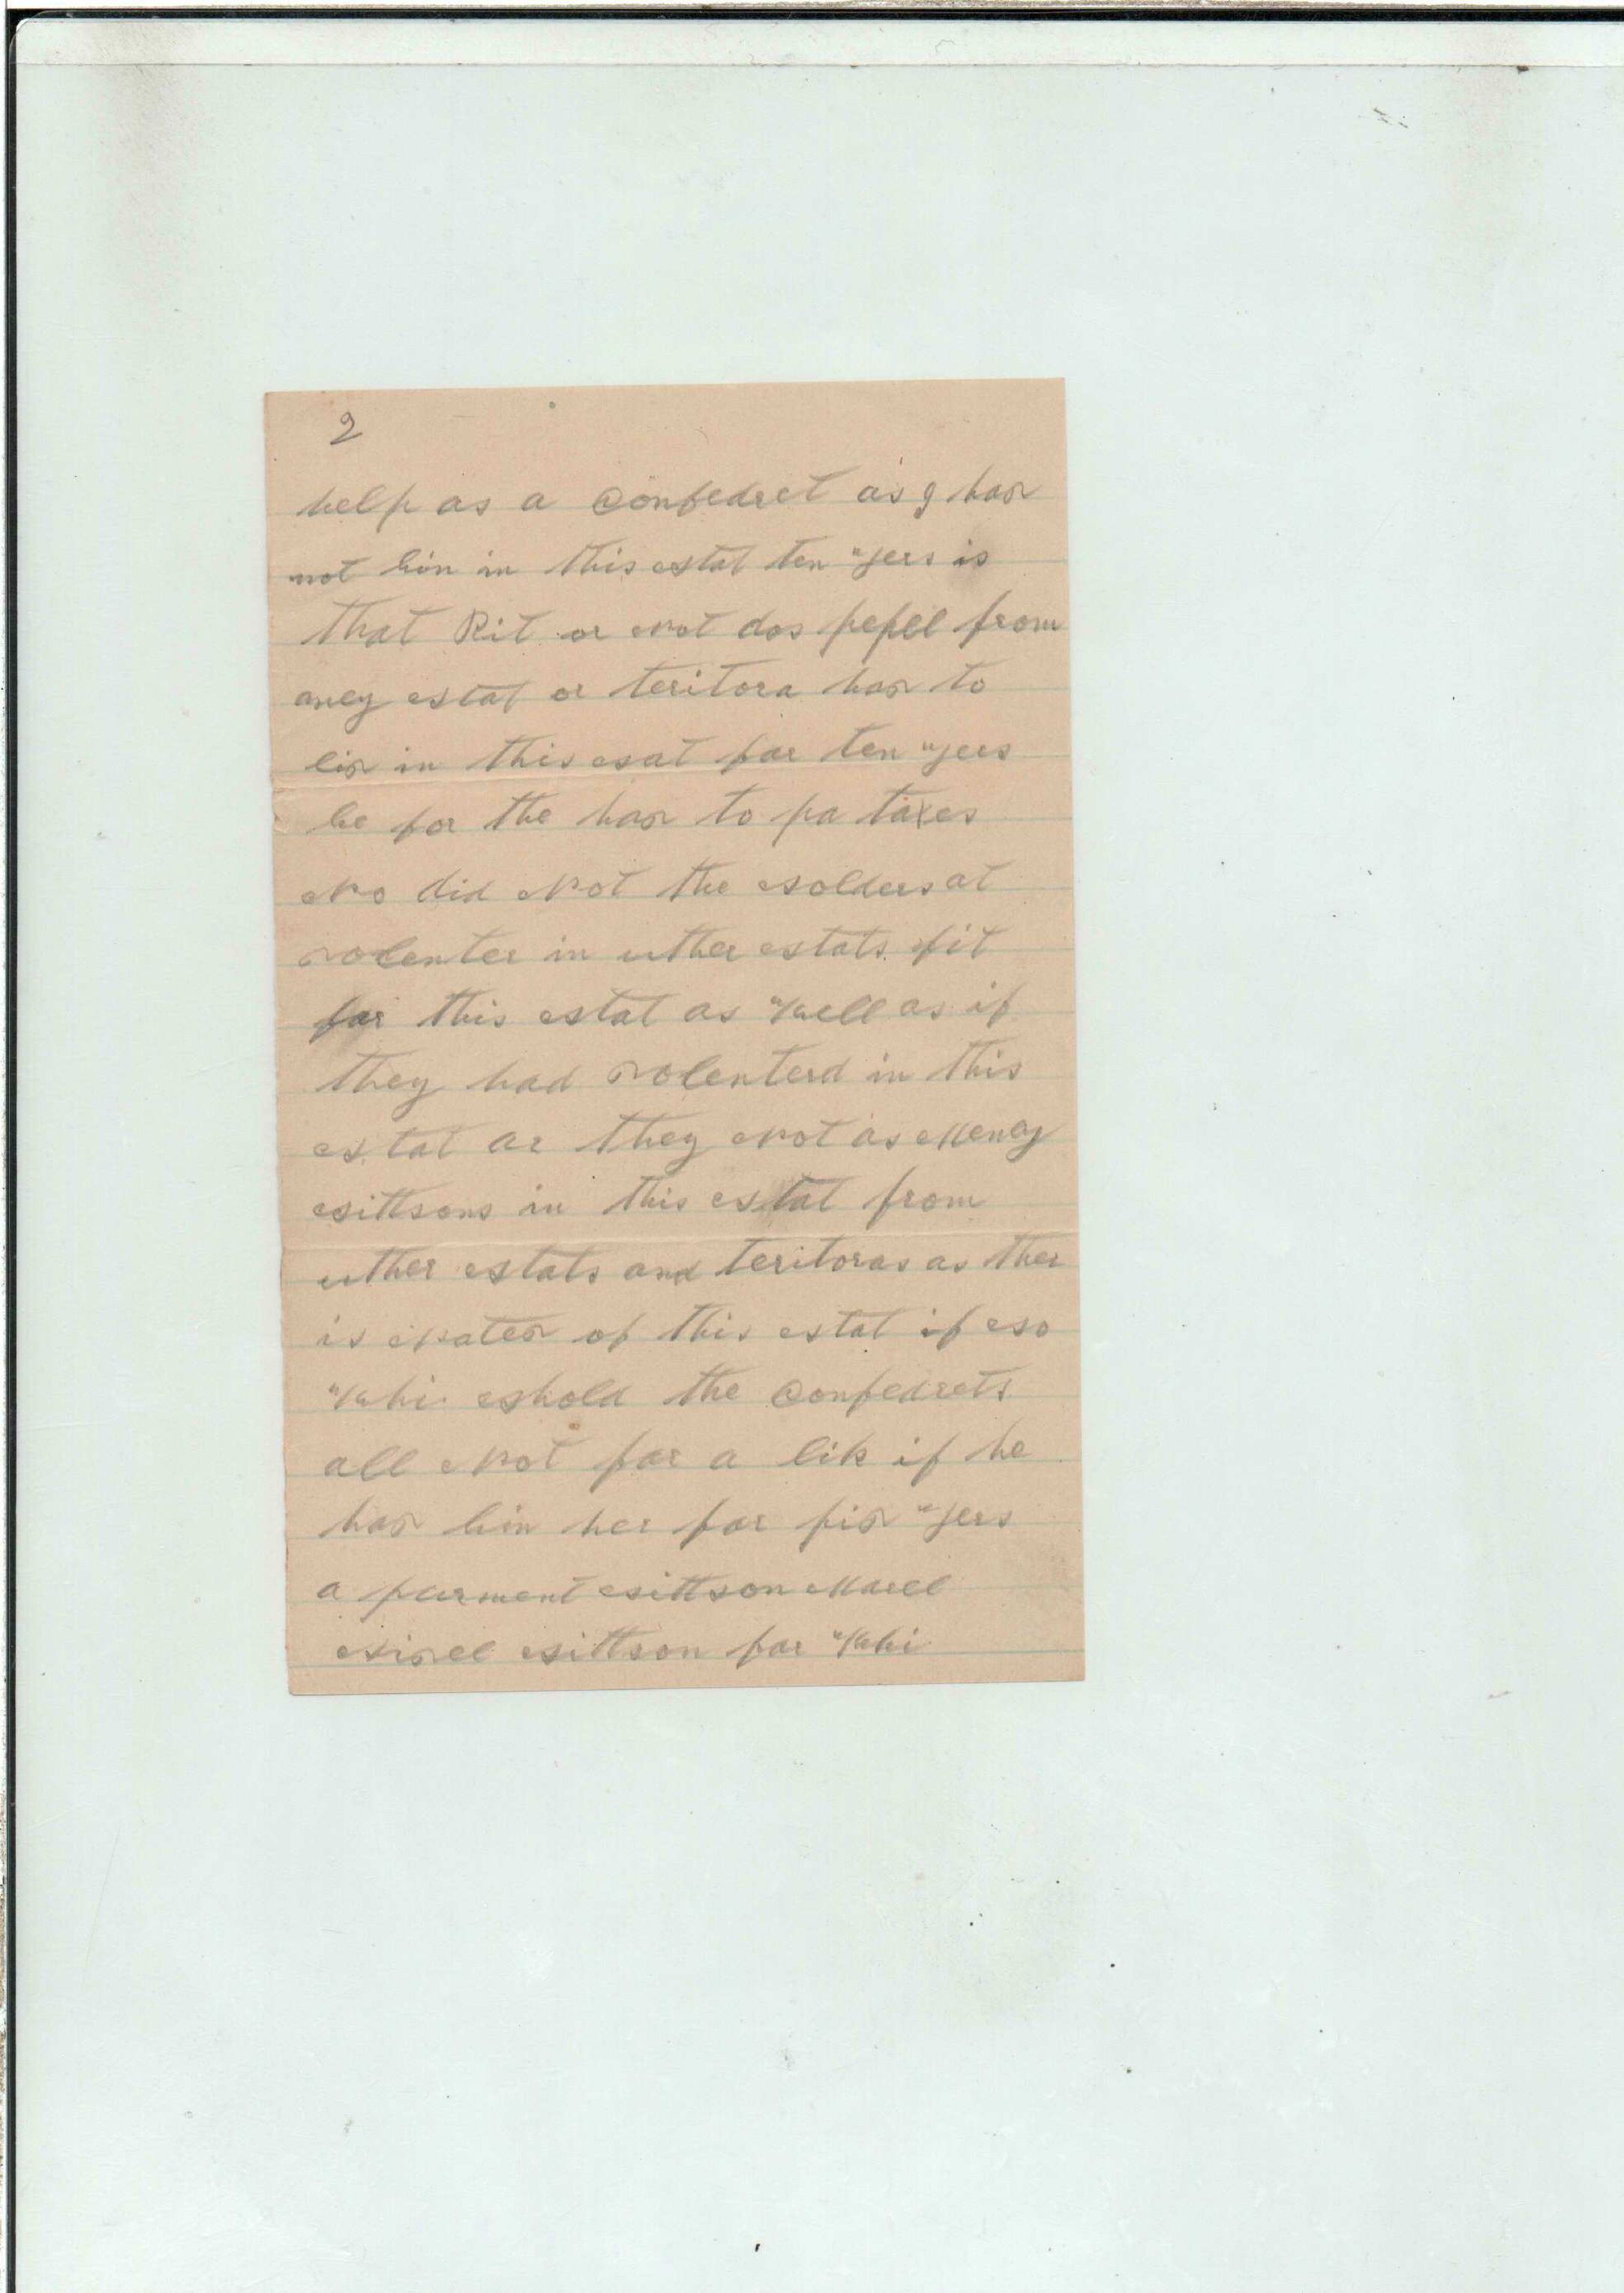 2
help as a Confedret as I hav
not liv in this stat ten yers is
that Rit or not dos pepell from
aney stat or teritora hav to
liv in this sat for ten yers
be for the hav to pa taxes
No did Not the solders at
volenter in uther stats fit
for this stat as Well as if
they had volenterd in this
stat ar they Not as Meney
sittsons in this stat from
uther stats and teritoras as ther
is Nativ of this stat if so
Whi shold the Confedrets
all Not far a lik if he
hav liv her for fiv yers
a purment sittson Marel
sivel sittson for Whi